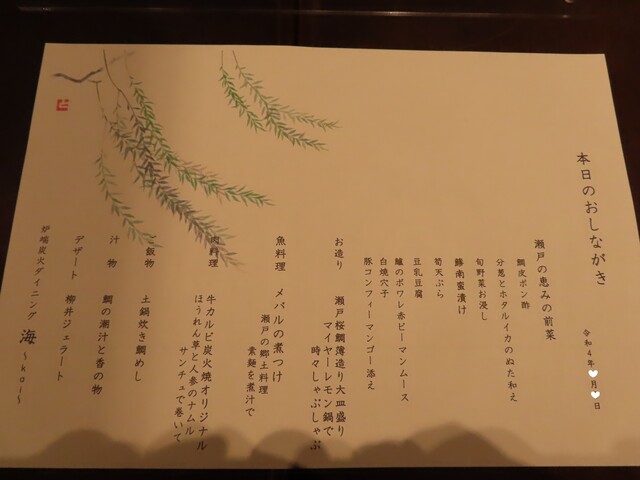 本日のおしながき
令和4年♥月♥日
瀬戸の恵みの前菜
鯛皮ポン酢
分葱とホタルイカのぬた和え
旬野菜お浸し
鰆南蛮漬け
筍天ぷら
豆乳豆腐
鱸のポワレ赤ピーマンムース
白焼穴子
豚コンフィーマンゴー添え
お造り 瀬戸桜鯛薄造り大皿盛り
マイヤーレモン鍋で
時々しゃぶしゃぶ
魚料理 メバルの煮つけ
瀬戸の郷土料理
素麺を煮汁で
肉料理 牛カルビ炭火焼オリジナル
ほうれん草と人参のナムル
サンチュで巻いて
ご飯物 土鍋炊き鯛めし
汁物 鯛の潮汁と香の物
デザート 柳井ジェラート
炉端炭火ダイニング 海 ~koi~